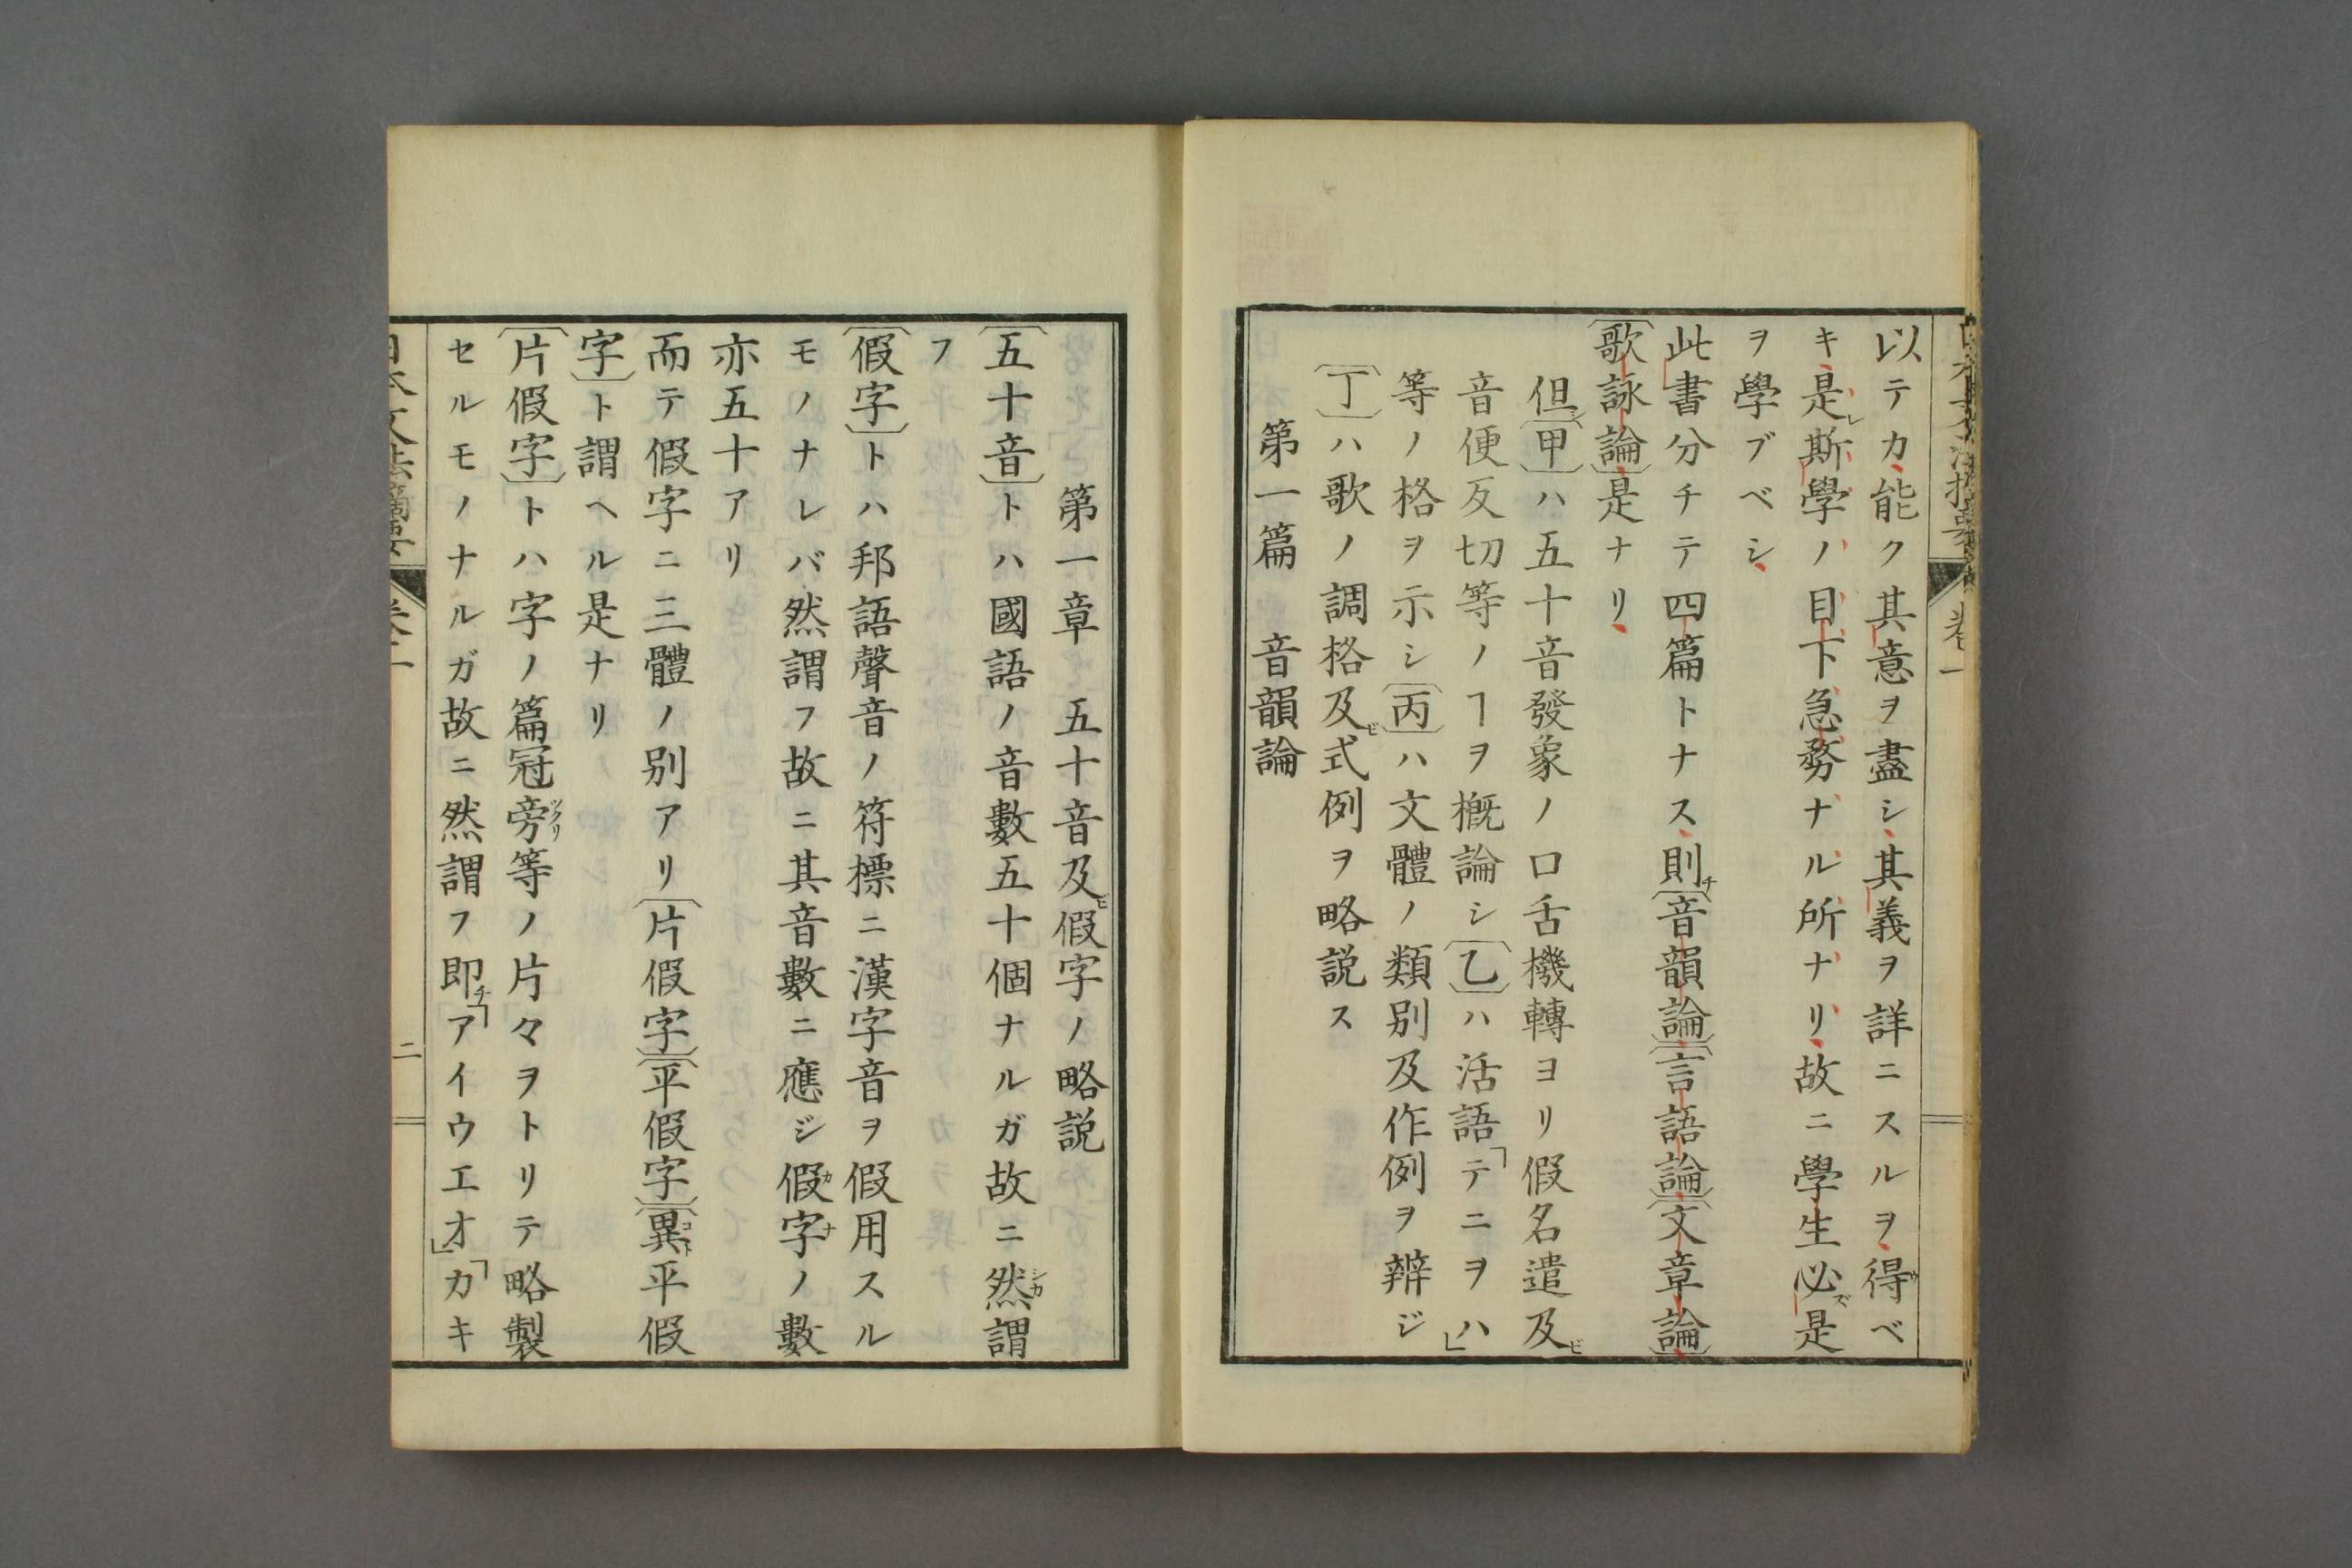 以テカ能ク其意ヲ盡シ其義ヲ詳ニスルヲ得ベ
キ是レ斯學ノ目下急務ナル所ナリ故ニ學生必ズ是
ヲ學ブベシ
此書分チテ四篇トナス則チ〔音韻論〕〔言語論〕〔文章論〕
〔歌詠論〕是ナリ
但シ〔甲〕ハ五十音發象ノ口舌機轉ヨリ假名遣及ビ
音便反切等ノヿヲ概論シ〔乙〕ハ活語「テニヲハ」
等ノ格ヲ示シ〔丙〕ハ文體ノ類別及作例ヲ辨ジ
〔丁〕ハ歌ノ調格及ビ式例ヲ略説ス
第一篇 音韻論
第一章 五十音及ビ假字ノ略説
〔五十音〕トハ國語ノ音數五十個ナルガ故ニ然謂
フ
〔假字〕トハ邦語聲音ノ符標ニ漢字音ヲ假用スル
モノナレバ然謂フ故ニ其音數ニ應ジ假字ノ數
亦五十アリ
而テ假字ニ三體ノ別アリ〔片假字〕〔平假字〕〔異平假
字〕ト謂ヘル是ナリ
〔片假字〕トハ字ノ篇冠旁等ノ片々ヲトリテ略製
セルモノナルガ故ニ然謂フ即チ「アイウエオ」「カキ
日本文法摘要 卷一 二